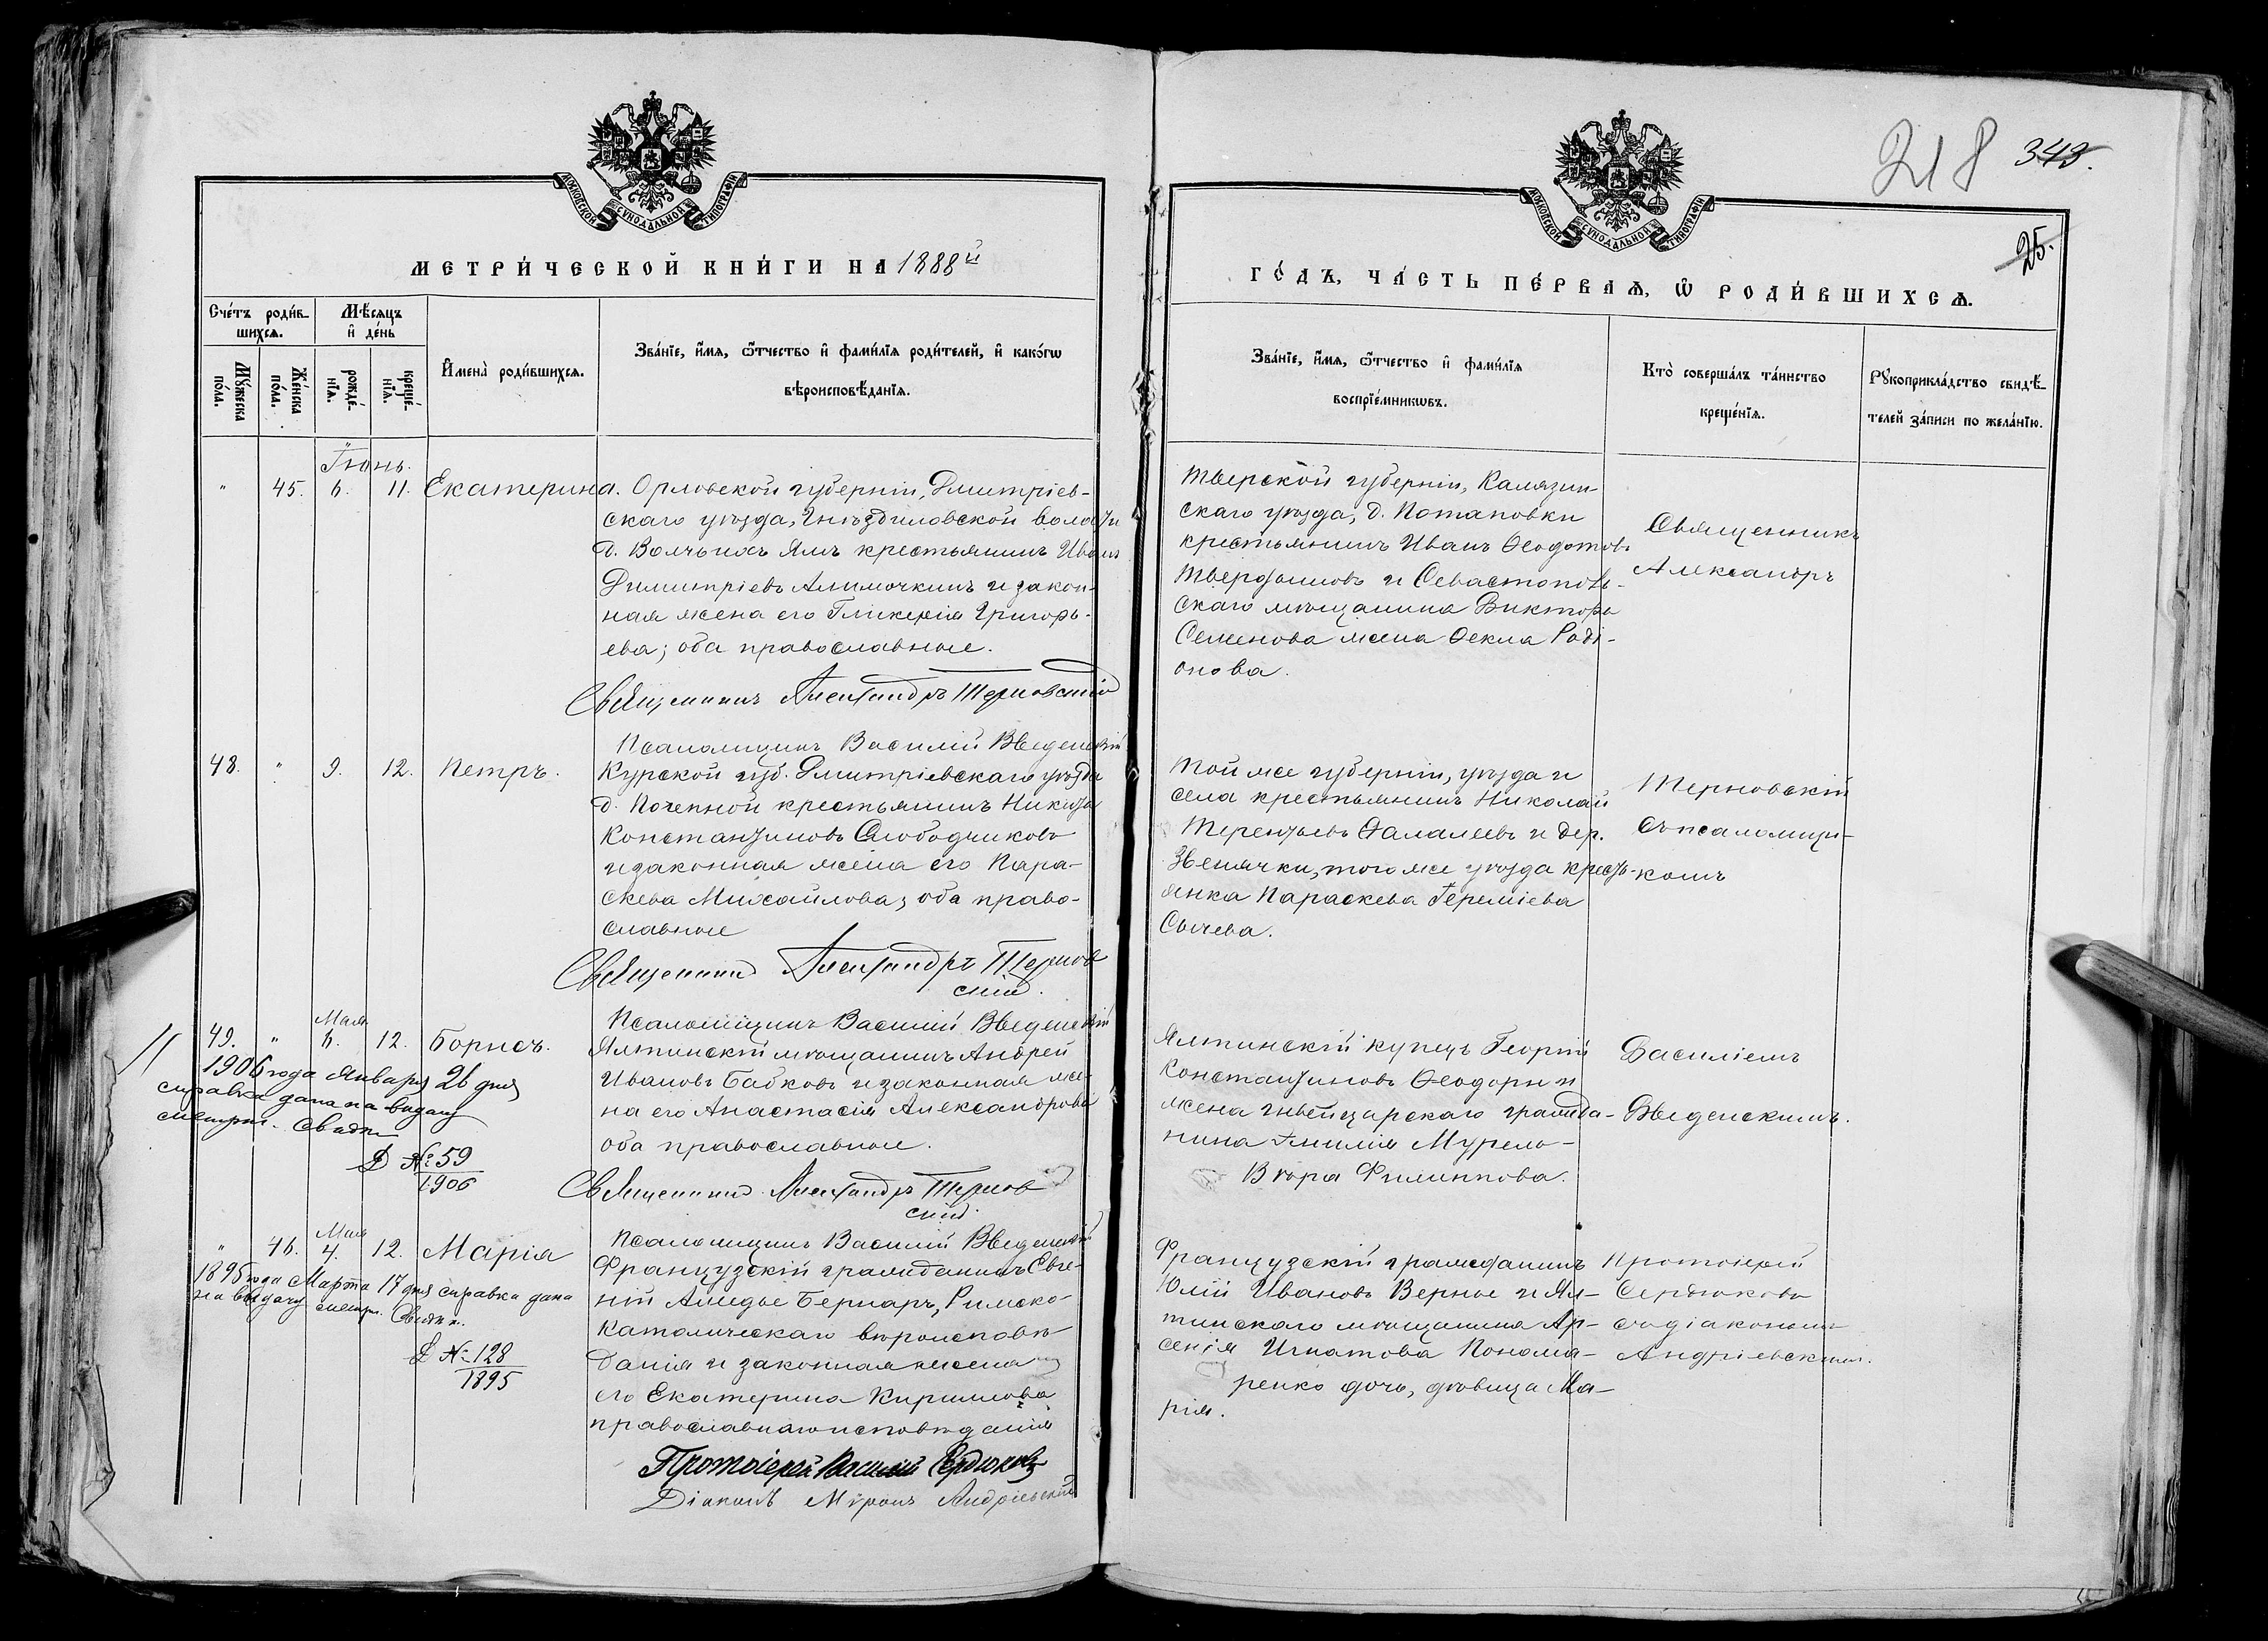 МОСКОВСКОЙ СѴНОДАЛЬНОЙ ТИПОГРАФІИ
МЕТРИ́ЧЕСКОЙ КНИ́ГИ НА 1888й
Сче́тъ роди́в-
шихсѧ.
Мѣ́сѧцъ
и҆ де́нь
Мꙋ́жеска
по́ла.
Же́нска
по́ла.
рожде́-
нїѧ.
креще́-
нїѧ.
И҆мена̀ роди́вшихсѧ.
Зва́нїе, и҆́мѧ, ѻ҆́тчество и҆ фами́лїѧ роди́телей, и҆ како́гѡ
вѣроисповѣ́данїѧ.
Іюнь.
" 45. 6. 11. Екатерина.
Орловской губерніи, Дмитріев-
скаго уѣзда, Гнѣздиловской волости
д. Волчьихъ Ямъ крестьянинъ Иванъ
Димитріевъ Алимочкинъ и закон-
ная жена его Гликерія Григорь-
ева; оба православные.
Священникъ Александръ Терновскій
Псаломщикъ Василій Введенскій
48. " 9. 12. Петръ.
Курской губ. Дмитріевскаго уѣзда
д. Почепной крестьянинъ Никита
Константиновъ Слободчиковъ
и законная жена его Пара-
скева Михайлова; оба право-
славные
Священникъ Александръ Тернов
скій.
Псаломщикъ Василій Введенскій
Мая
49. " 6. 12. Борисъ.
Ялтинскій мѣщанинъ Андрей
Ивановъ Бабковъ и законная же-
на его Анастасія Александрова
оба православные.
1906 года Января 26 дня
справка дана на выдачу
метрич. Свидѣт
Д №59
1906
Священникъ Александръ Тернов
скій.
Псаломщикъ Василій Введенскій
Мая
" 46. 4. 12. Марія
Французскій гражданинъ Евге-
ній Амедье Бернаръ, Римско-
католическаго вѣроисповѣ-
данія и законная жена
его Екатерина Кириллова
православнаго исповѣданія
1895 года Марта 17 дня справка дана
на выдачу метрич. Свидѣт.
Д №128
1895
Протоіерей Василій Сердюковъ
Діаконъ Миронъ Андріевскій
218 343.
25.
МОСКОВСКОЙ СѴНОДАЛЬНОЙ ТИПОГРАФІИ
ГО́ДЪ, ЧА́СТЬ ПЕ́РВАѦ, Ѽ РОДИ́ВШИХСѦ.
Зва́нїе, и҆́мѧ, ѻ҆́тчество и҆ фами́лїѧ
воспрїе́мникѡвъ.
Кто̀ соверша́лъ та́инство
креще́нїѧ.
Рꙋкоприкла́дство свидѣ́-
телей за́писи по жела́нїю.
Тверской губерніи, Калязин-
скаго уѣзда, д. Потаповки
крестьянинъ Иванъ Ѳеодотовъ
Твердыновъ и Севастополь-
скаго мѣщанина Виктора
Семенова жена Ѳекла Роді-
онова.
Священникъ
Александръ
Той же губерніи, уѣзда и
села крестьянинъ Николай
Терентьевъ Ѳалалеевъ и дер.
Звенячки, того же уѣзда кресть-
янка Параскева Іереміева
Сычева.
Терновскій
съ псаломщи-
комъ
Ялтинскій купецъ Георгій
Константиновъ Ѳеодори и
жена швейцарскаго гражда-
нина Эмилія Мурело-
Вѣра Филиппова.
Василіемъ
Введенскимъ.
Французскій гражданинъ
Юлій Ивановъ Вернье и Ял-
тинскаго мѣщанина Ар-
сенія Игнатова Понома-
ренко дочь, дѣвица Ма-
рія.
Протоіерей
Сердюковъ
съ діакономъ
Андріевскимъ.